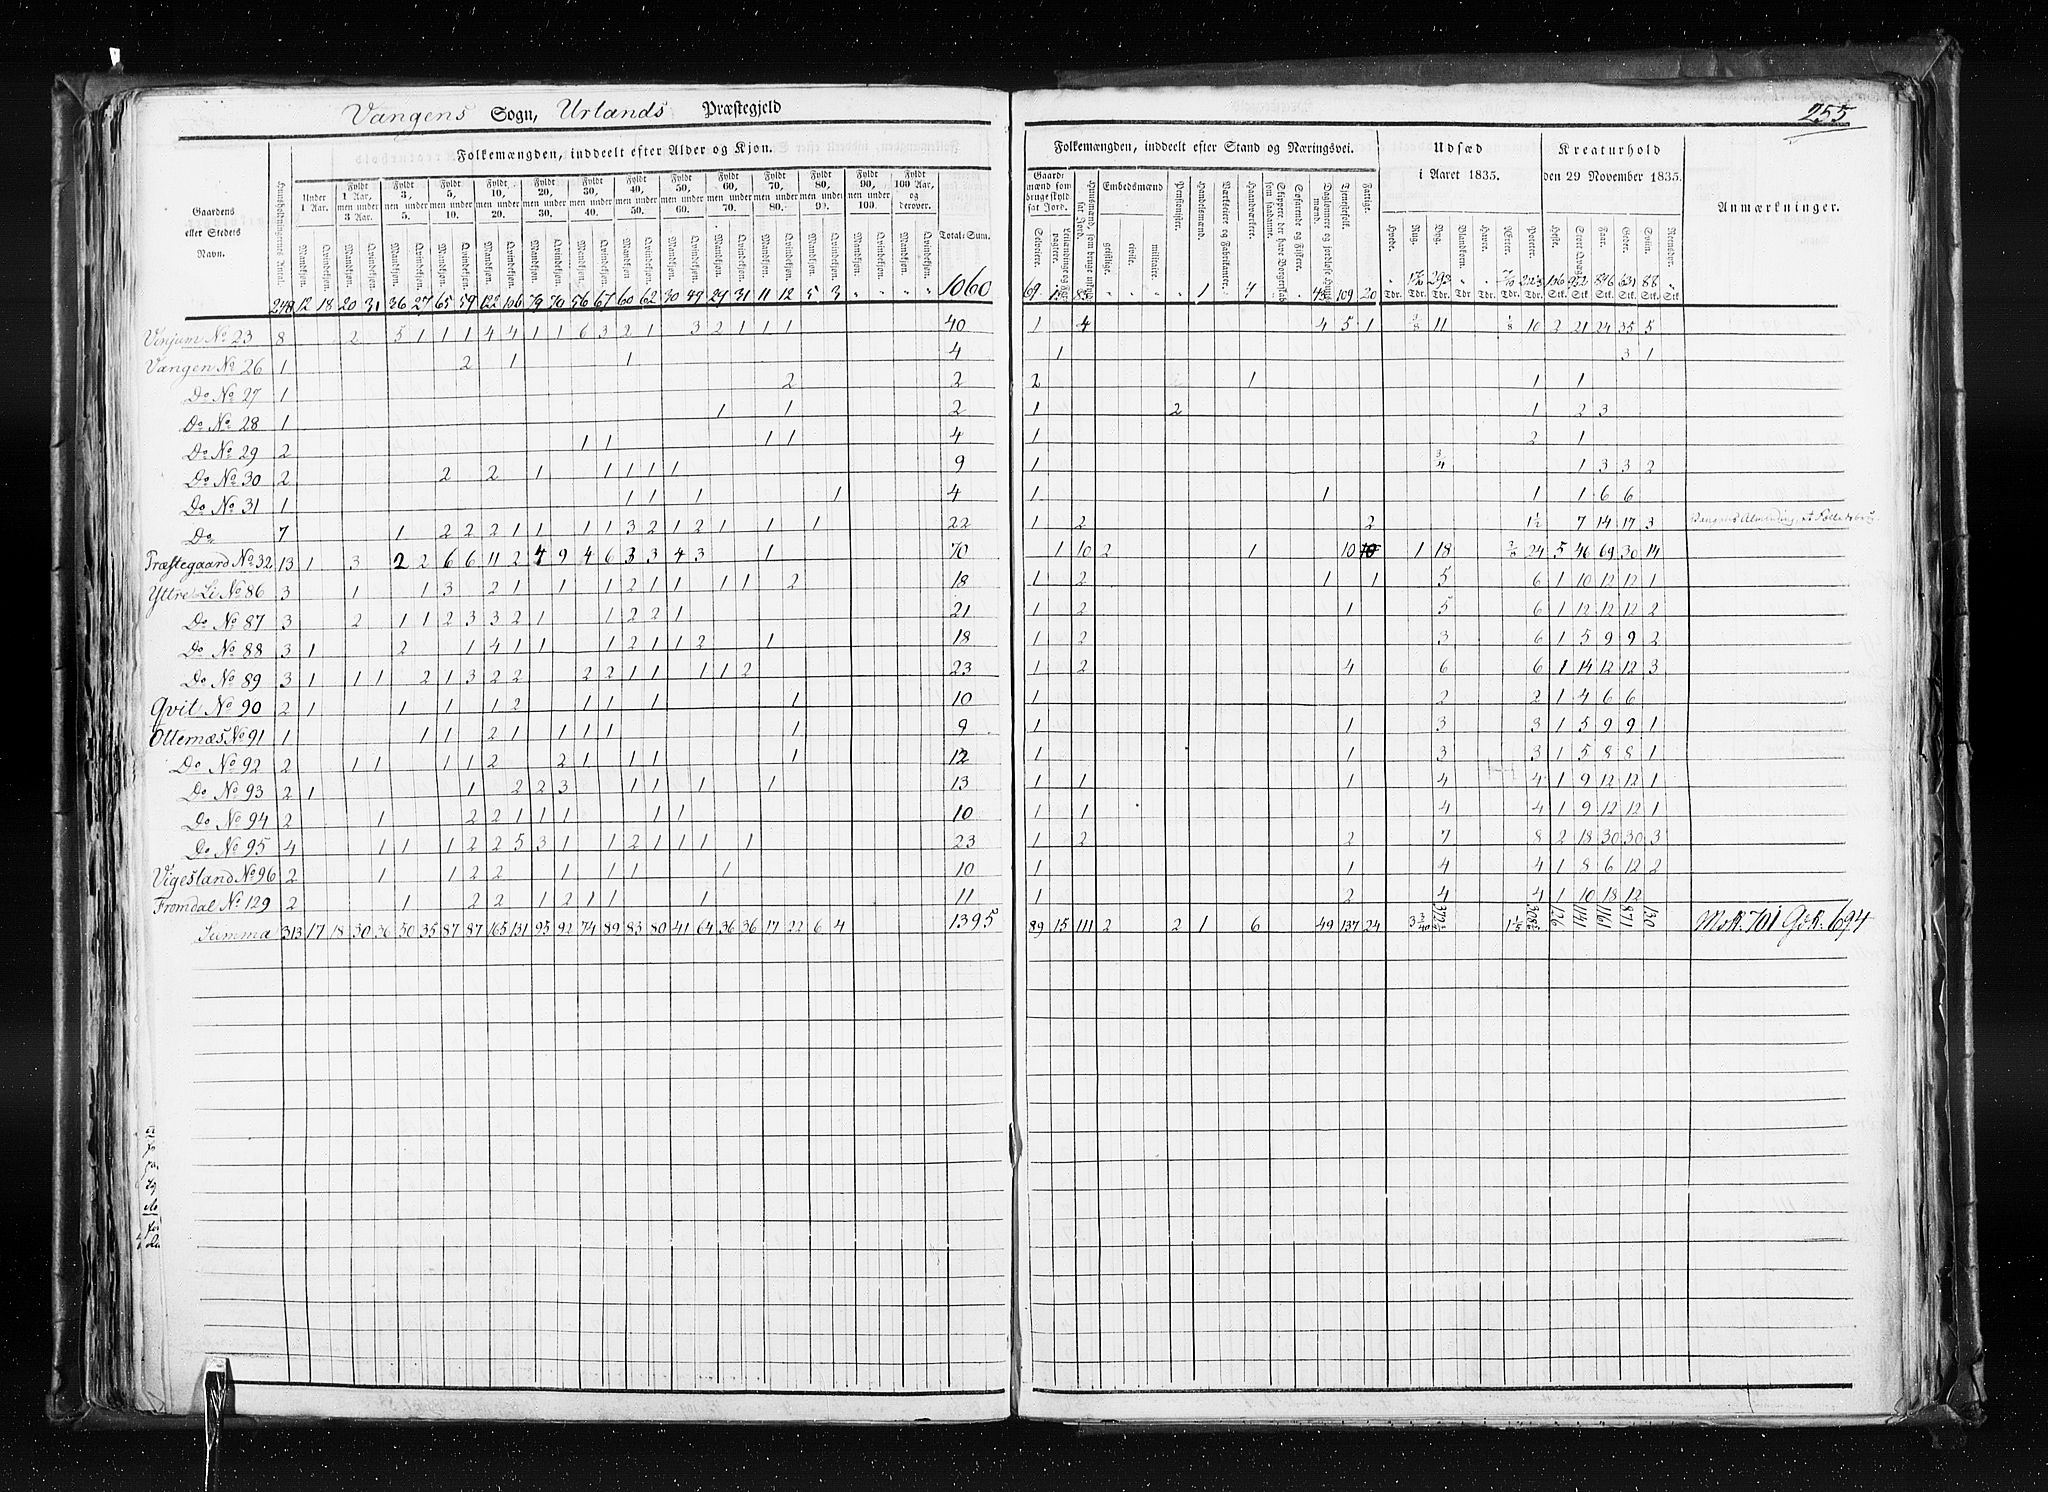 Vangens Sogn, Urlands Præstegjeld
255
Gaardens eller Stedets Navn.
Huusholdningernes Antal.
Folkemængden, inddeelt efter Alder og Kjøn.
Under 1 Aar.
Fyldt 1 Aar, men under 3 Aar.
Fyldt 3, men under 5.
Fyldt 5, men under 10.
Fyldt 10, men under 20.
Fyldt 20, men under 30.
Fyldt 30, men under 40.
Fyldt 40, men under 50.
Fyldt 50, men under 60.
Fyldt 60, men under 70.
Fyldt 70, men under 80.
Fyldt 80, men under 90.
Fyldt 90, men under 100.
Fyldt 100 Aar, og derover.
Mandkjøn. Qvindekjøn.
Total-Sum.
Folkemængden, inddeelt efter Stand og Næringsvei.
Gaardmænd som bruge skyldsat Jord.
Selveiere.
Embedsmænd
geistlige. civile. militaire.
Pensionister.
Handelsmænd.
Værkseiere og Fabrikanter.
Haandværkere.
Skippere der have Borgerskab som saadanne.
Søefarende og Fiskere.
Tjenestefolk.
Fattige.
Udsæd i Aaret 1835.
Hvede. Rug. Byg. Blandkorn. Havre. Erter. Poteter.
Kreaturhold den 29 November 1835.
Heste. Stort Qvæg. Faar. Geder. Sviin. Rensdyr.
Anmærkninger.
248 12 18 20 31 36 27 65 59 122 106 79 70 56 67 60 62 30 49 29 31 11 12 5 3 " " " " 1060
Vinjum No 23 8 2 5 1 1 1 4 4 1 1 6 3 2 1 3 2 1 1 1 40 1 4 4 5 1 3/8 11 1/8 10 2 21 24 35 5
Vangen No 26 1 2 1 1 4 1 3 1
Do No 27 1 2 2 2 1 1 1
Do No 28 1 1 1 2 1 2 1 2 3
Do No 29 2 1 1 1 1 4 1 2 1
Do No 30 2 2 2 1 1 1 1 1 9 1 3/4 1 3 3 2
Do No 31 1 1 1 1 1 4 1 1 1 1 6 6
Do 7 1 2 2 2 1 1 1 1 3 2 1 2 1 1 1 22 1 2 2 1½ 7 14 17 3
Præstegaard No 32 13 1 3 2 2 6 6 11 2 4 9 4 6 3 3 4 3 1 70 1 10 2 1 10 1 18 24 5 46 69 30 14
Yttre Li No 86 3 1 1 3 2 1 1 1 2 1 1 1 1 2 18 1 2 1 1 5 6 1 10 12 12 1
Do No 87 3 2 1 1 2 3 3 2 1 1 2 2 1 21 1 2 1 5 6 1 12 12 12 2
Do No 88 3 1 2 1 4 1 1 1 2 1 1 2 1 18 1 2 3 6 1 5 9 9 2
Do No 89 3 1 1 1 2 1 3 2 2 2 2 1 1 1 1 2 23 1 2 4 6 6 1 14 12 12 3
Qvit No 90 2 1 1 1 1 2 1 1 1 1 10 1 2 2 1 4 6 6
Otternæs No 91 1 1 1 2 1 1 1 1 1 9 1 1 3 3 1 5 9 9 1
Do No 92 2 1 1 1 1 2 2 1 1 1 1 12 1 1 3 3 1 5 8 8 1
Do No 93 2 1 1 2 2 3 1 1 1 1 13 1 1 1 4 4 1 9 12 12 1
Do No 94 2 1 2 2 1 1 1 1 1 10 1 1 4 4 1 9 12 12 1
Do No 95 4 1 1 1 2 2 5 3 1 1 2 1 1 1 1 23 1 2 2 7 8 2 18 30 30 3
Vigesland No 96 2 1 1 2 2 1 1 1 1 10 1 1 4 4 1 8 6 12 2
Fromdal No 129 2 1 2 2 1 2 1 1 1 11 1 2 4 4 1 10 18 12
Summa 313 17 18 30 36 50 35 87 87 165 131 95 92 74 89 83 80 41 64 36 36 17 22 6 4 1395 89 15 111 2 2 1 6 49 137 24 3 3/40 1 1/5 126 1141 1161 871 130 MsK. 701 GsK. 694